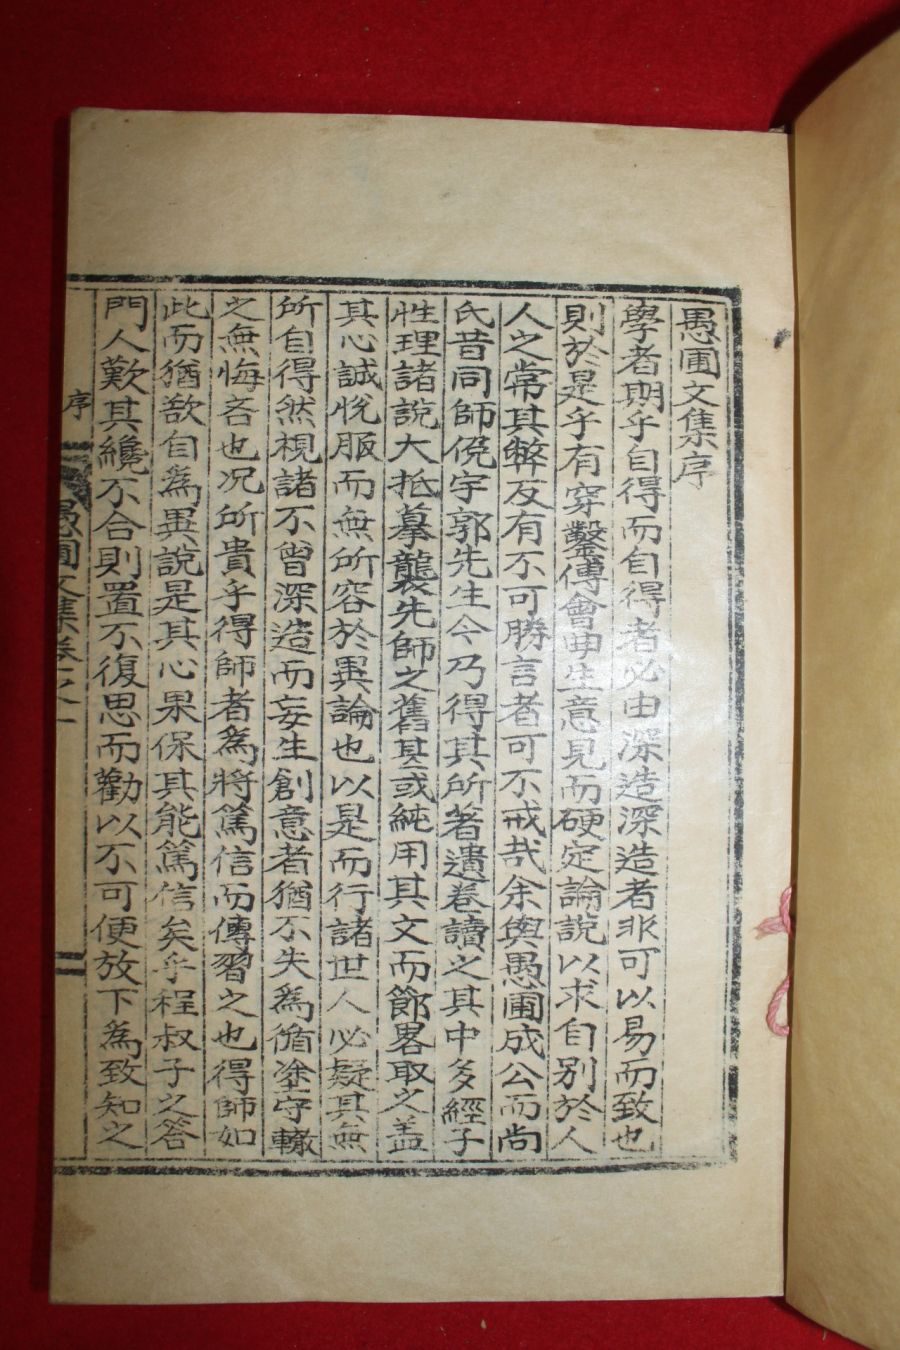 愚圃文集序
學者期乎自得而自得者必由深造深造者非可以易而致也
則於是乎有穿鑿傅會曲生意見而硬定論說以求自別於人
人之常其弊反有不可勝言者可不戒哉余與愚圃成公而尚
氏昔同師俛宇郭先生今乃得其所著遺卷讀之其中多經子
性理諸說大抵摹襲先師之舊其或純用其文而節畧取之盖
其心誠悅服而無所容於異論也以是而行諸世人必疑其無
所自得然視諸不曾深造而妄生創意者猶不失爲循塗守轍
之無悔吝也况所貴乎得師者爲將篤信而傳習之也得師如
此而猶欲自爲異說是其心果保其能篤信矣乎程叔子之答
門人歎其纔不合則置不復思而勸以不可便放下爲致知之
序
愚圃文集卷之一